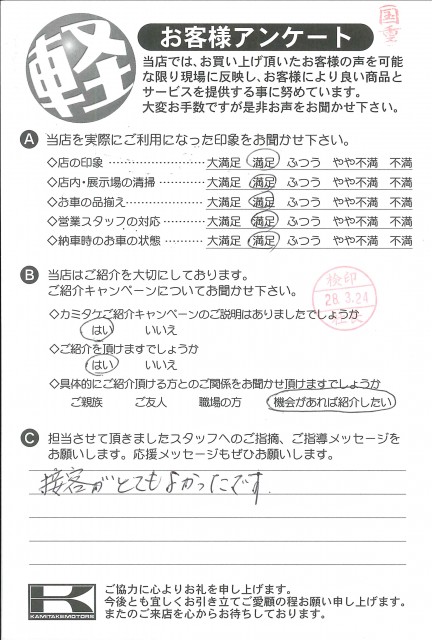 軽
お客様アンケート
国重
当店では、お買い上げ頂いたお客様の声を可能
な限り現場に反映し、お客様により良い商品と
サービスを提供する事に努めています。
大変お手数ですが是非お声をお聞かせ下さい。
A 当店を実際にご利用になった印象をお聞かせ下さい。
◇店の印象 …………………… 大満足 満足 ふつう やや不満 不満
◇店内・展示場の清掃 ………… 大満足 満足 ふつう やや不満 不満
◇お車の品揃え ……………… 大満足 満足 ふつう やや不満 不満
◇営業スタッフの対応 ………… 大満足 満足 ふつう やや不満 不満
◇納車時のお車の状態 ………… 大満足 満足 ふつう やや不満 不満
B 当店はご紹介を大切にしております。
ご紹介キャンペーンについてお聞かせ下さい。
検印
28.3.24
◇カミタケご紹介キャンペーンのご説明はありましたでしょうか
はい いいえ
◇ご紹介を頂けますでしょうか
はい いいえ
◇具体的にご紹介頂ける方とのご関係をお聞かせ頂けますでしょうか
ご親族 ご友人 職場の方 機会があれば紹介したい
C 担当させて頂きましたスタッフへのご指摘、ご指導メッセージを
お願いします。応援メッセージもぜひお願いします。
接客がとてもよかったです.
K
KAMITAKEMOTORS
ご協力に心よりお礼を申し上げます。
今後とも宜しくお引き立てご愛顧の程お願い申し上げます。
またのご来店を心からお待ちしております。